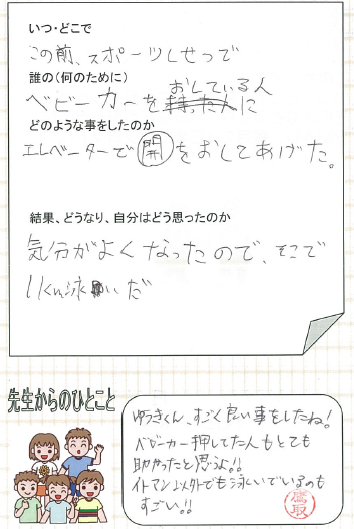 いつ・どこで
この前、スポーツしせつで
誰の(何のために)
おしている人
ベビーカーを に
どのような事をしたのか
エレベーターで開をおしてあげた。
結果、どうなり、自分はどう思ったのか
気分がよくなったので、そこで
1km泳いだ
先生からのひとこと
ゆうきくん、すごく良い事をしたね!
ベビーカー押してた人もとても
助かったと思うよ!!
イトマン以外でも泳いでいるのも
すごい!!
鷹取